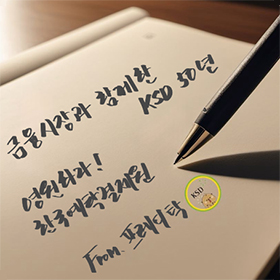 금융시장과 함께한
KSD 50년
영원하라!
한국예탁결제원
From. 프레디탁
KSD